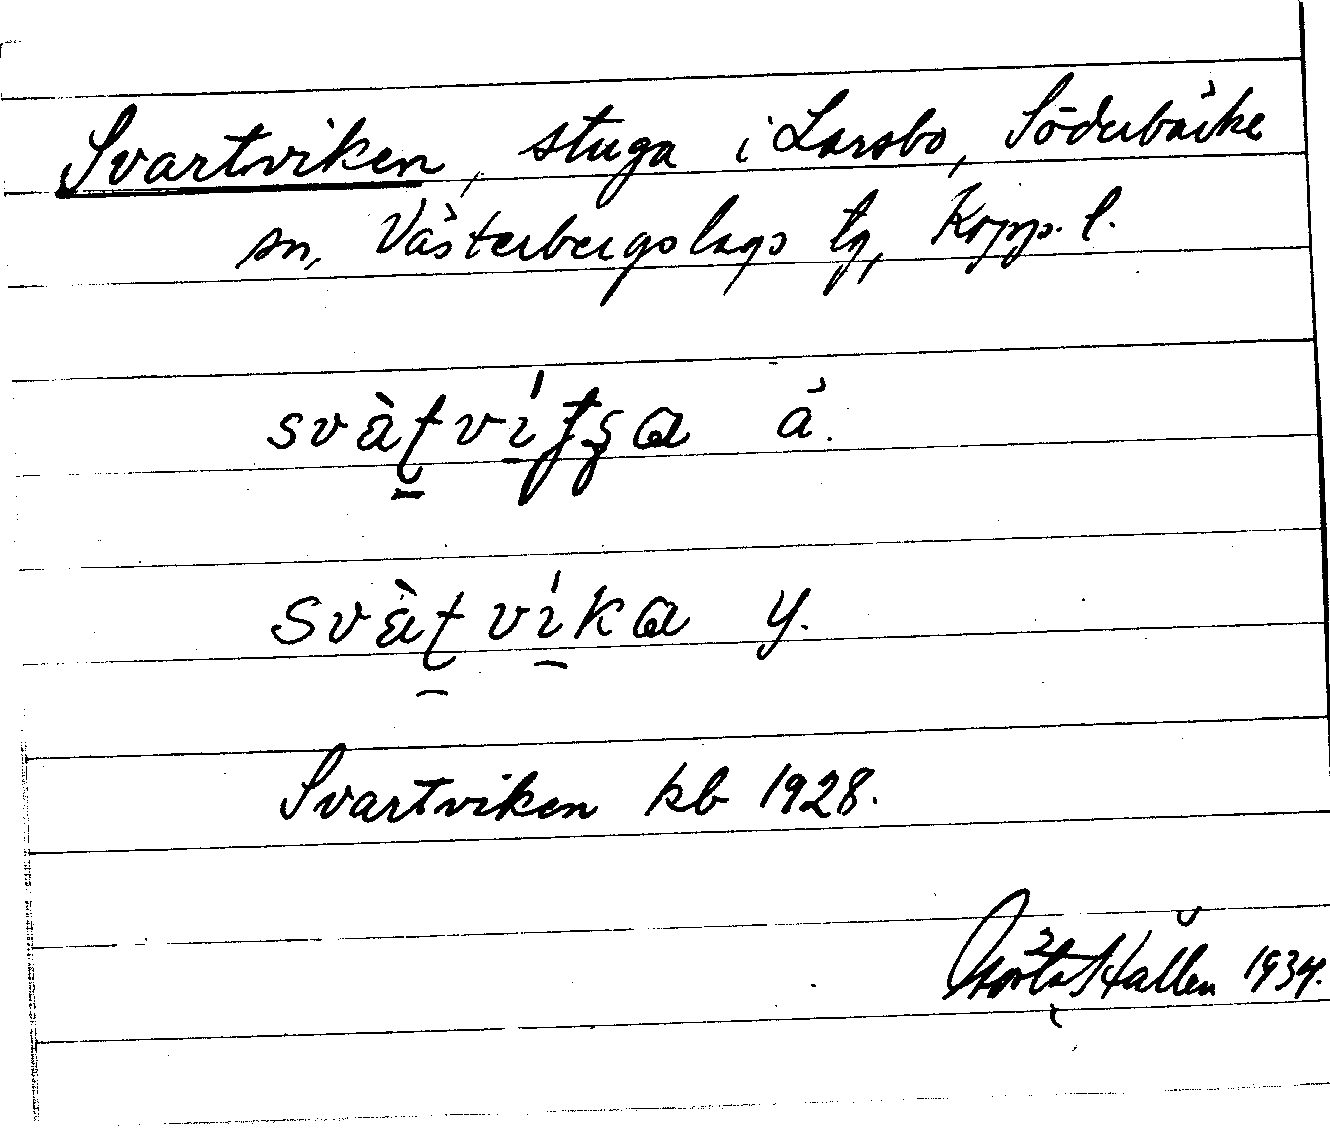 Svartviken, stuga i Larsbo, Söderbärke
sn, Västerbergslags tg, Kopp. l.
svàʈví̱ʈʂɑ ä.
svàʈvíkɑ y.
Svartviken kb 1928.
Gösta Hallén 1934.